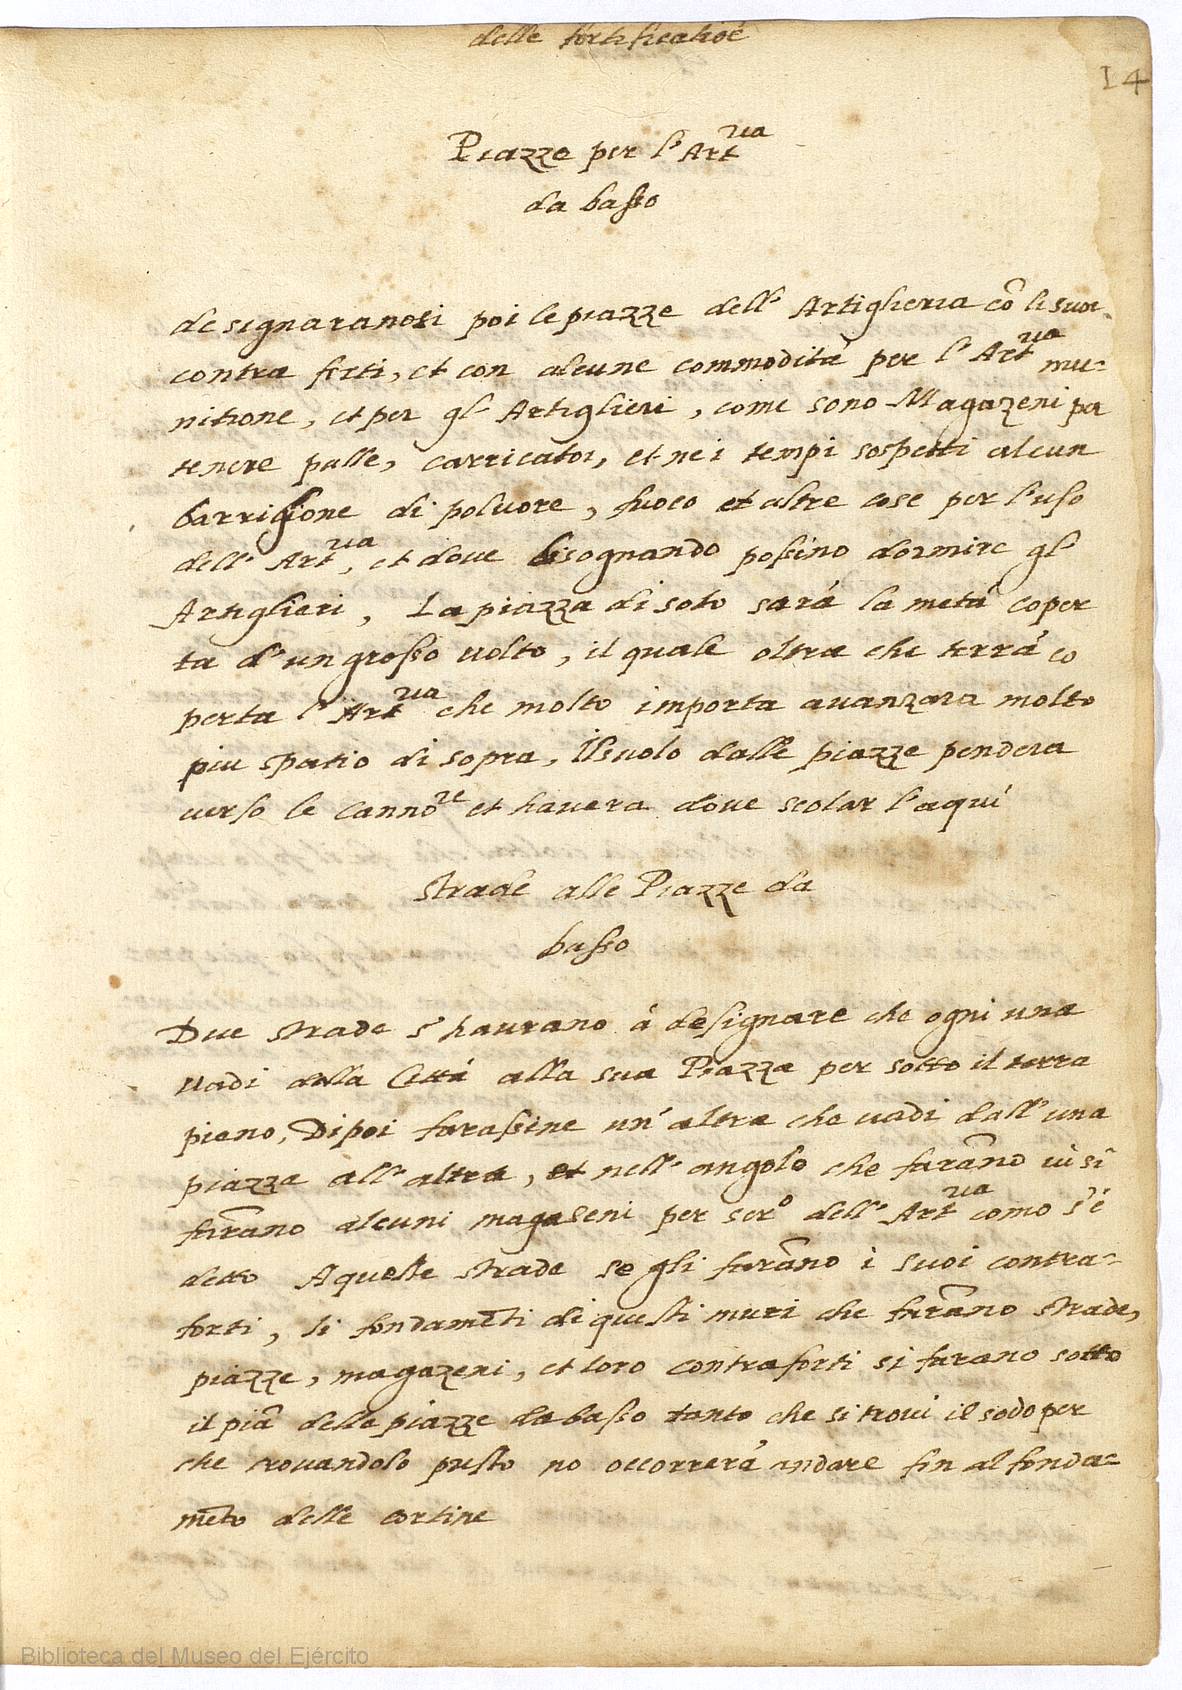 delle fortificatiōe
14
Piazze per l'Art.ria
da basso
designaransi poi le piazze dell' Artiglieria cō li suoi
contra forti, et con alcune commodità per l'Art.ria mu-
nitione, et per gl' Artiglieri, come sono Magazeni per
tenere palle, carricatoi, et nei tempi sospetti alcun
barriglione di polvore, fuoco et altre cose per l'uso
dell' Art.ria, et dove bisognando possino dormire gl'
Artiglieri, La piazza di soto sarà la metà coper
ta d'un grosso volto, il quale oltra che terrà co
perta l'Art.ria che molto importa avanzara molto
piu spatio di sopra, Il suolo dalle piazze pendera
verso le Canno.re et havera dove scolar l'aqui
strade alle Piazze da
basso
Due strade s'havrano à designare che ogni una
vadi dalla Città alla sua Piazza per sotto il terra
pieno, Dipoi farassine un'altra che vadi dall'una
piazza all'altra, et nell'angolo che farāno ivi si
farāno alcuni magaseni per ser.o dell'Art.ria como s'è
detto A queste strade se gli farāno i suoi contra-
forti, li fondamēti di questi muri che farāno strade,
piazze, magazeni, et loro contraforti si farano sotto
il piā delle piazze da basso tanto che si trovi il sodo per
che trovandolo pusto no occorrerà andare fin al fonda-
mēto delle cortine
Biblioteca del Museo del Ejército